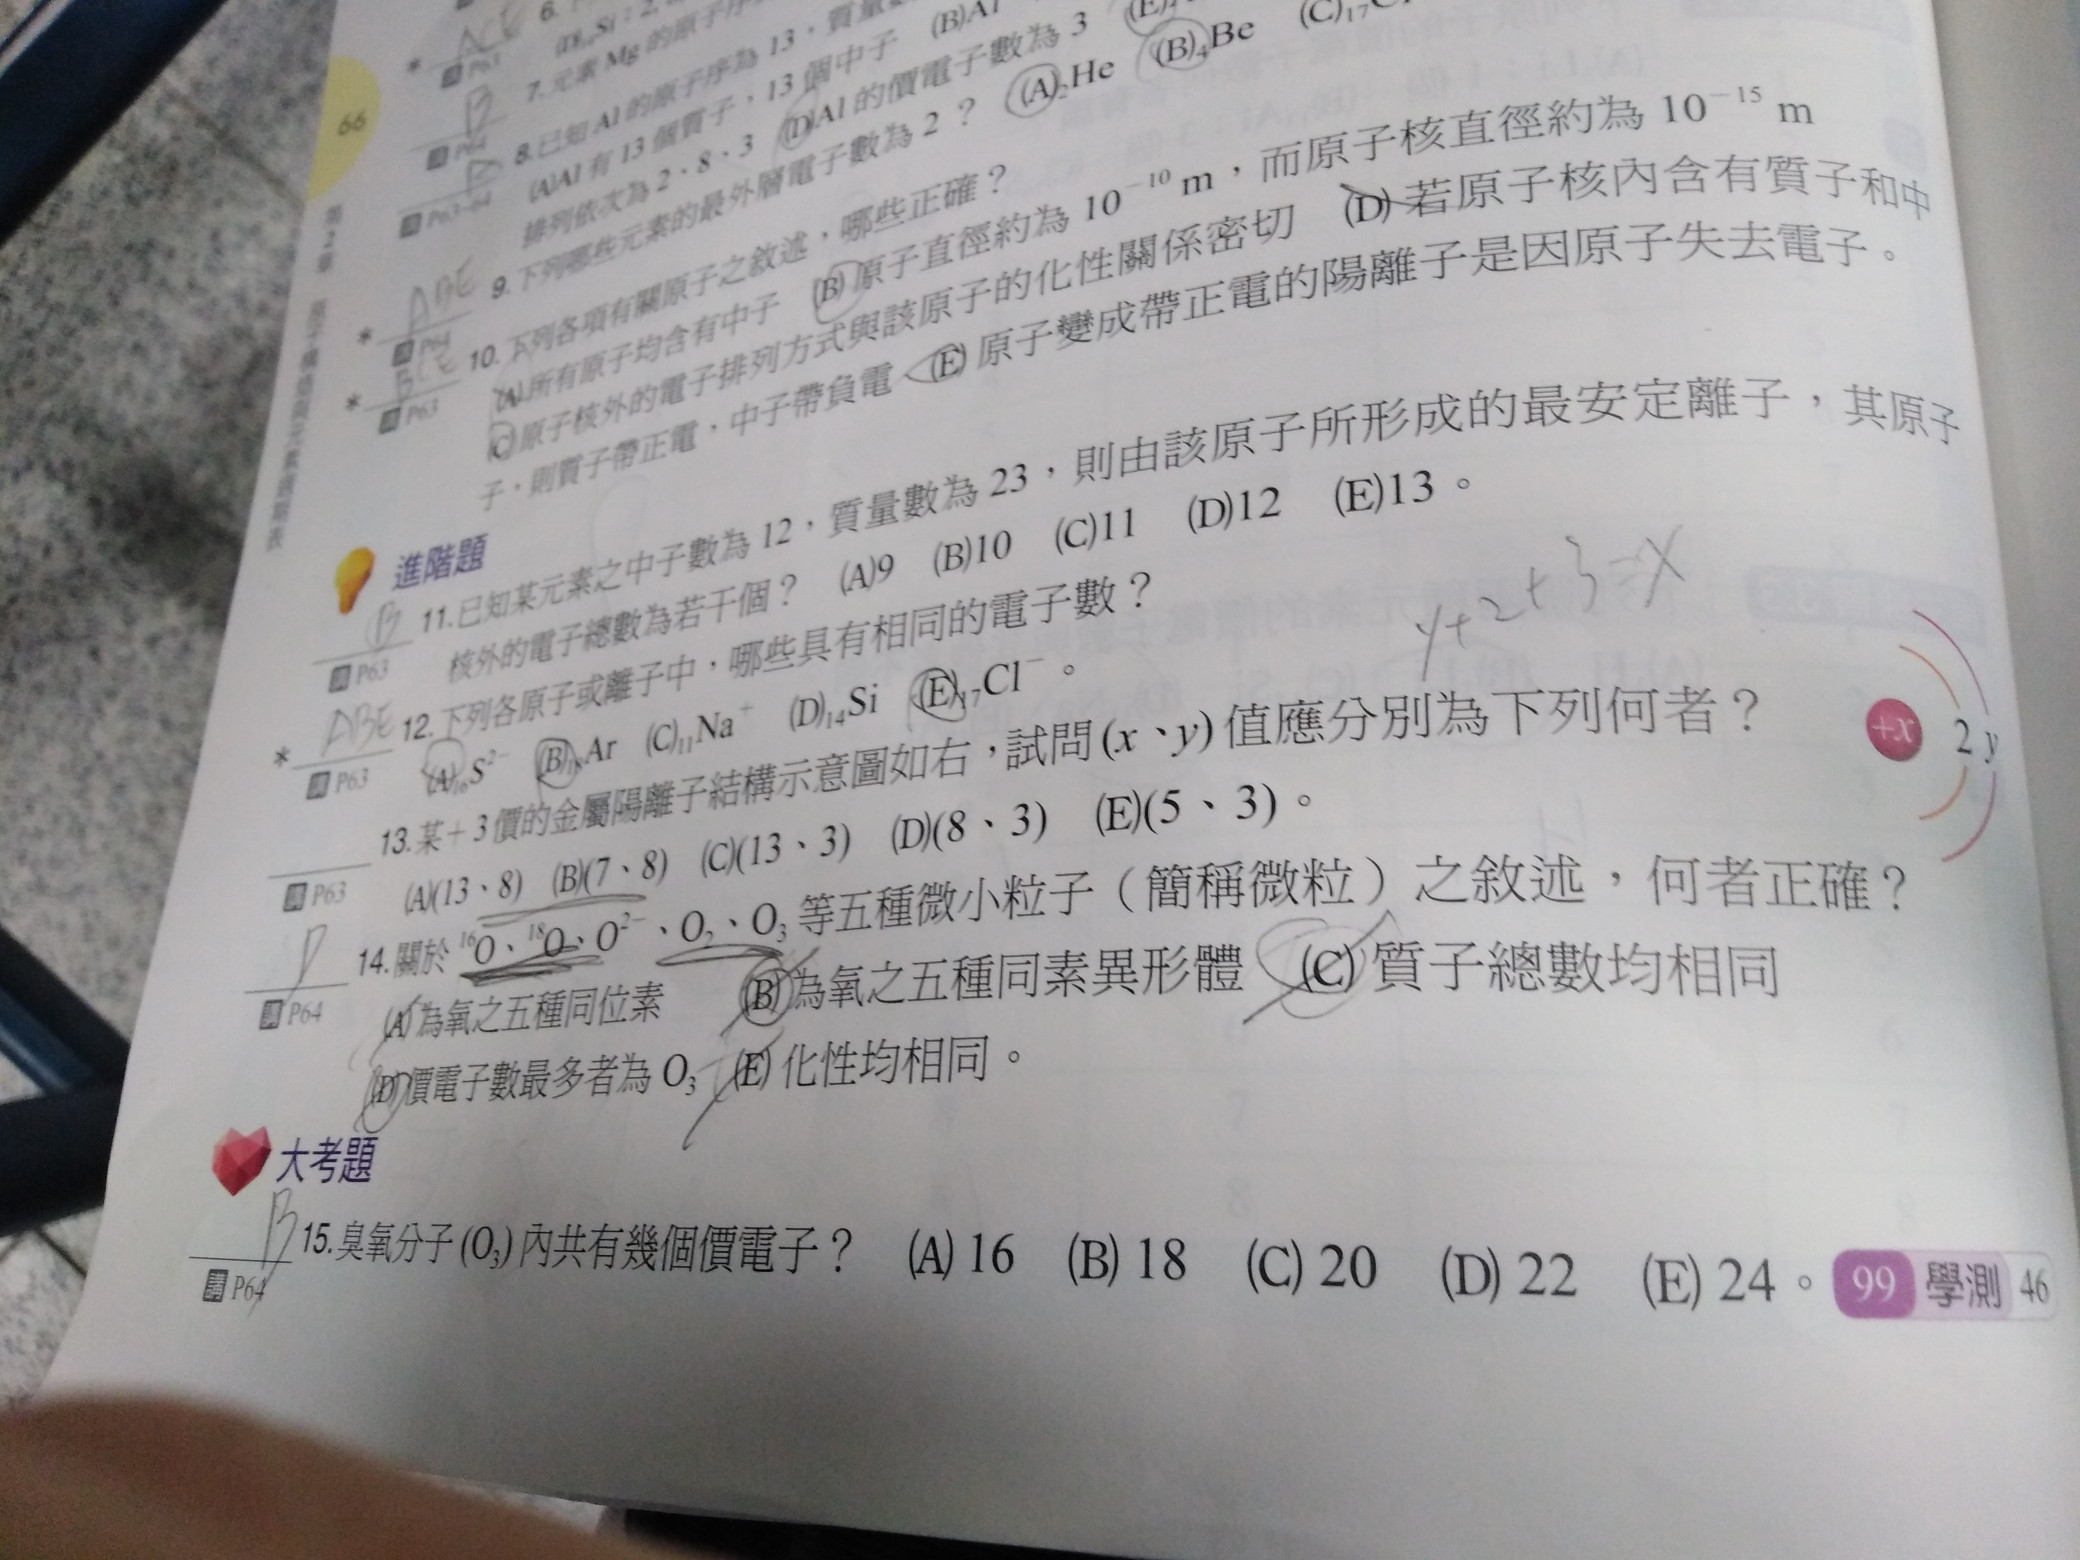 66
第2章 原子構造與元素週期表
ACE 6.
* 講 P63
B 7.元素 Mg 的原子序
講 P64
8.已知 Al 的原子序為 13，質量數
講 P63~64 (A)Al 有 13 個質子，13 個中子 (B)Al
排列依次為 2、8、3 (D)Al 的價電子數為 3 (E)
ABE 9.下列哪些元素的最外層電子數為 2？ (A)₂He (B)₄Be (C)₁₇
* 講 P64
BCE 10.下列各項有關原子之敘述，哪些正確？
* 講 P63 (A)所有原子均含有中子 (B)原子直徑約為 10⁻¹⁰ m，而原子核直徑約為 10⁻¹⁵ m
(C)原子核外的電子排列方式與該原子的化性關係密切 (D)若原子核內含有質子和中
子，則質子帶正電，中子帶負電 (E)原子變成帶正電的陽離子是因原子失去電子。
進階題
B 11.已知某元素之中子數為 12，質量數為 23，則由該原子所形成的最安定離子，其原子
講 P63 核外的電子總數為若干個？ (A)9 (B)10 (C)11 (D)12 (E)13。
ABE 12.下列各原子或離子中，哪些具有相同的電子數？
* 講 P63 (A)₁₆S²⁻ (B)₁₈Ar (C)₁₁Na⁺ (D)₁₄Si (E)₁₇Cl⁻。
y+2+3=x
13.某＋3 價的金屬陽離子結構示意圖如右，試問(x、y)值應分別為下列何者？
講 P63 (A)(13、8) (B)(7、8) (C)(13、3) (D)(8、3) (E)(5、3)。
+x 2 y
D 14.關於 ¹⁶O、¹⁸O、O²⁻、O₂、O₃ 等五種微小粒子（簡稱微粒）之敘述，何者正確？
講 P64 (A)為氧之五種同位素 (B)為氧之五種同素異形體 (C)質子總數均相同
(D)價電子數最多者為 O₃ (E)化性均相同。
大考題
B 15.臭氧分子(O₃)內共有幾個價電子？ (A) 16 (B) 18 (C) 20 (D) 22 (E) 24。 99 學測 46
講 P64